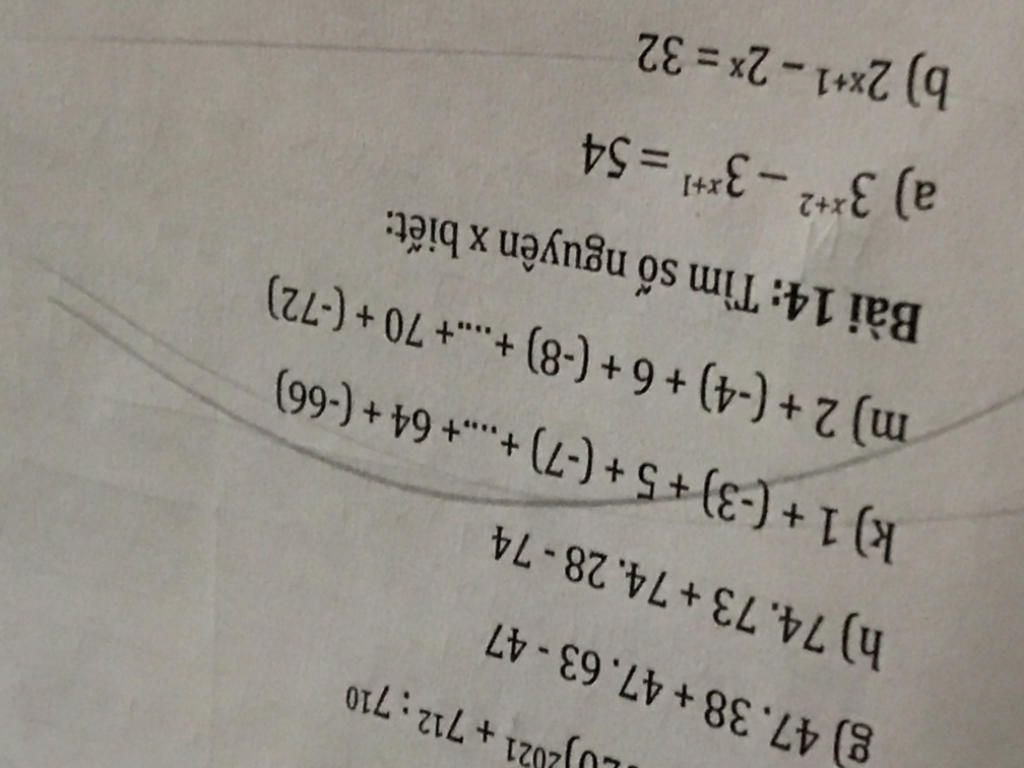 20)²⁰²¹ + 7¹² : 7¹⁰
g) 47. 38 + 47. 63 - 47
h) 74. 73 + 74. 28 - 74
k) 1 + (-3) + 5 + (-7) +....+ 64 + (-66)
m) 2 + (-4) + 6 + (-8) +....+ 70 + (-72)
Bài 14: Tìm số nguyên x biết:
a) 3ˣ⁺² − 3ˣ⁺¹ = 54
b) 2ˣ⁺¹ − 2ˣ = 32